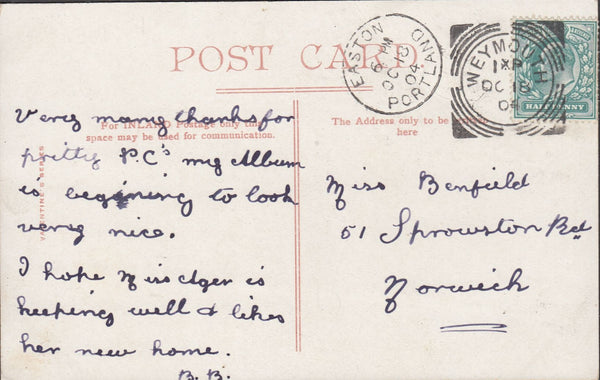 POST CARD.
EASTON PORTLAND
6 PM
OC 10
04
WEYMOUTH
OC 10
04
HALFPENNY
For INLAND Postage only this
space may be used for communication.
The Address only to be
here
VALENTINE'S SERIES
Very many thanks for
pretty P.C's my Album
is beginning to look
very nice.
I hope Miss Ager is
keeping well & likes
her new home.
B. B.
Miss Benfield
51 Sprowston Rd
Norwich